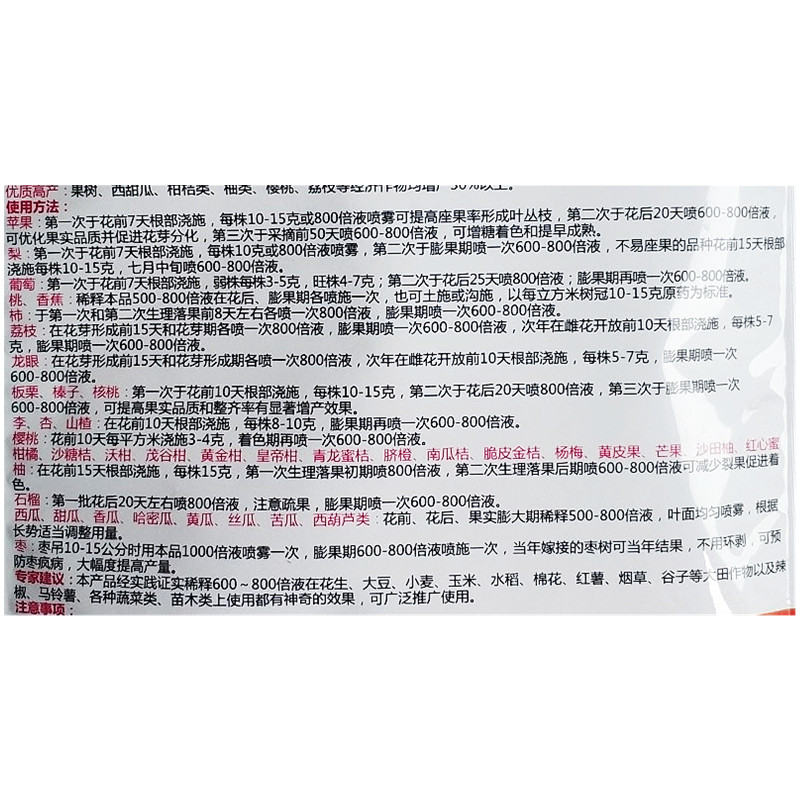 优质高产：果树、西甜瓜、柑桔类、柚类、樱桃、荔枝等经济作物均增产30%以上。
使用方法：
苹果：第一次于花前7天根部浇施，每株10-15克或800倍液喷雾可提高座果率形成叶丛枝，第二次于花后20天喷600-800倍液，
可优化果实品质并促进花芽分化，第三次于采摘前50天喷600-800倍液，可增糖着色和提早成熟。
梨：第一次于花前7天根部浇施，每株10克或800倍液喷雾，第二次于膨果期喷一次600-800倍液，不易座果的品种花前15天根部
浇施每株10-15克，七月中旬喷600-800倍液。
葡萄：第一次于花前7天根部浇施，弱株每株3-5克，旺株4-7克；第二次于花后25天喷800倍液；膨果期再喷一次600-800倍液。
桃、香蕉：稀释本品500-800倍液在花后、膨果期各喷施一次，也可土施或沟施，以每立方米树冠10-15克原药为标准。
柿：于第一次和第二次生理落果前8天左右各喷一次800倍液，膨果期喷一次600-800倍液。
荔枝：在花芽形成前15天和花芽期各喷一次800倍液，膨果期喷一次600-800倍液，次年在雌花开放前10天根部浇施，每株5-7
克，膨果期喷一次600-800倍液。
龙眼：在花芽形成前15天和花芽形成期各喷一次800倍液，次年在雌花开放前10天根部浇施，每株5-7克，膨果期喷一次
600-800倍液。
板栗、榛子、核桃：第一次于花前10天根部浇施，每株10-15克，第二次于花后20天喷800倍液，第三次于膨果期喷一次
600-800倍液，可提高果实品质和整齐率有显著增产效果。
李、杏、山楂：在花前10天根部浇施，每株8-10克，膨果期再喷一次600-800倍液。
樱桃：花前10天每平方米浇施3-4克，着色期再喷一次600-800倍液。
柑橘、沙糖桔、沃柑、茂谷柑、黄金柑、皇帝柑、青龙蜜桔、脐橙、南瓜桔、脆皮金桔、杨梅、黄皮果、芒果、沙田柚、红心蜜
柚：在花前15天根部浇施，每株15克，第一次生理落果初期喷800倍液，第二次生理落果后期喷600-800倍液可减少裂果促进着
色。
石榴：第一批花后20天左右喷800倍液，注意疏果，膨果期喷一次600-800倍液。
西瓜、甜瓜、香瓜、哈密瓜、黄瓜、丝瓜、苦瓜、西葫芦类：花前、花后、果实膨大期稀释500-800倍液，叶面均匀喷雾，根据
长势适当调整用量。
枣：枣用10-15公分时用本品1000倍液喷雾一次，膨果期600-800倍液喷施一次，当年嫁接的枣树可当年结果，不用环剥，可预
防枣疯病，大幅度提高产量。
专家建议：本产品经实践证实稀释600～800倍液在花生、大豆、小麦、玉米、水稻、棉花、红薯、烟草、谷子等大田作物以及辣
椒、马铃薯、各种蔬菜类、苗木类上使用都有神奇的效果，可广泛推广使用。
注意事项：